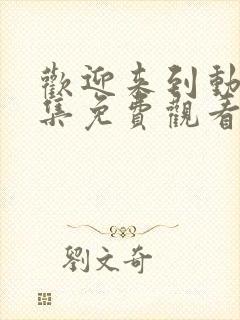 歡迎来到動
集免費觀看
劉文奇